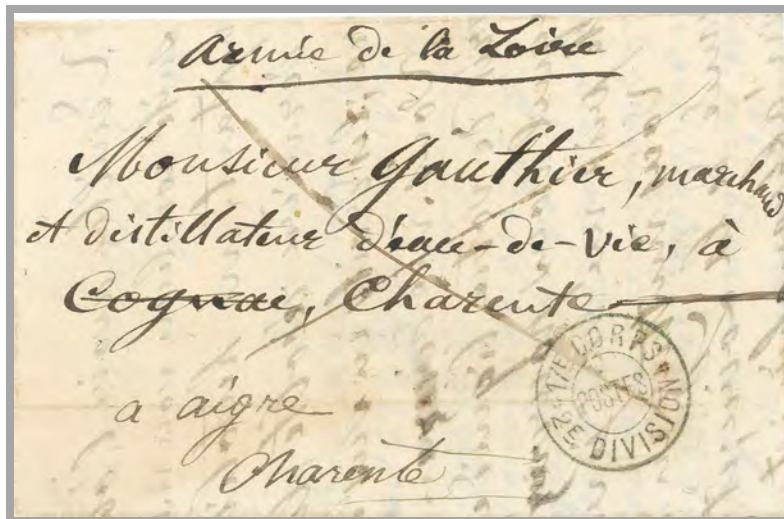 Armée de la Loire
Monsieur Gauthier, marchand
et distillateur d'eau-de-Vie, à
Cognac, Charente
a aigre
charente
17E CORPS
POSTES
2E DIVISION